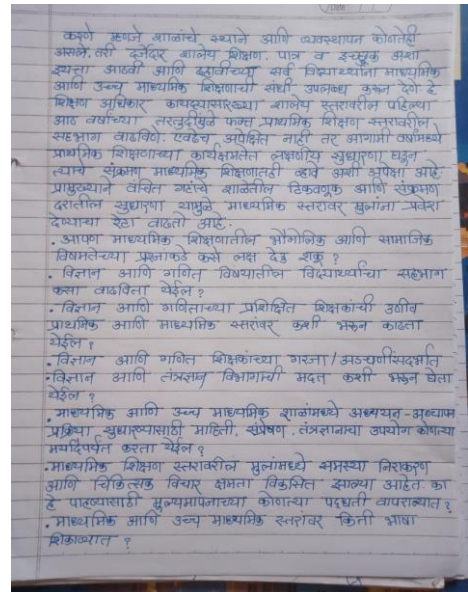 करणे म्हणजे शाळांचे स्थान आणि व्यवस्थापन कोणतेही
असले, तरी दर्जेदार शालेय शिक्षण. पात्र व इच्छुक अशा
इयत्ता आठवी आणि दहावीच्या सर्व विद्यार्थ्यांना माध्यमिक
आणि उच्च माध्यमिक शिक्षणाची संधी उपलब्ध करून देणे हे
शिक्षण अधिकार कायद्यासारख्या शालेय स्तरावरील पहिल्या
आठ वर्षाच्या तरतुदीमुळे फक्त प्राथमिक शिक्षण स्तरावरील
सहभाग वाढविणे. एवढेच अपेक्षित नाही तर आगामी वर्षामध्ये
प्राथमिक शिक्षणाच्या कार्यक्षमतेत लक्षणीय सुधारणा घडून
त्याचे संक्रमण माध्यमिक शिक्षणातही व्हावे अशी अपेक्षा आहे.
प्रामुख्याने वंचित गटांचे शाळेतील टिकवणूक आणि संक्रमण
दरातील सुधारणा यामुळे माध्यमिक स्तरावर मुलांना प्रवेश
देण्याचा रेटा वाढतो आहे.
• आपण माध्यमिक शिक्षणातील भौगोलिक आणि सामाजिक
विषमतेच्या प्रश्नाकडे कसे लक्ष देऊ शकू ?
• विज्ञान आणि गणित विषयातील विद्यार्थ्यांचा सहभाग
कसा वाढविता येईल ?
• विज्ञान आणि गणिताच्या प्रशिक्षित शिक्षकांची उणीव
प्राथमिक आणि माध्यमिक स्तरांवर कशी भरून काढता
येईल ?
• विज्ञान आणि गणित शिक्षकांच्या गरजा / अडचणींसंदर्भात
• विज्ञान आणि तंत्रज्ञान विभागाची मदत कशी भरून घेता
येईल ?
• माध्यमिक आणि उच्च माध्यमिक शाळांमध्ये अध्ययन-अध्यापन
प्रक्रिया सुधारण्यासाठी माहिती, संप्रेषण, तंत्रज्ञानाचा उपयोग कोणत्या
मर्यादेपर्यंत करता येईल ?
• माध्यमिक शिक्षण स्तरावरील मुलांमध्ये समस्या निराकरण
आणि चिकित्सक विचार क्षमता विकसित झाल्या आहेत का
हे पाहण्यासाठी मूल्यमापनाच्या कोणत्या पद्धती वापराव्यात ?
• माध्यमिक आणि उच्च माध्यमिक स्तरांवर किती भाषा
शिकाव्यात ?